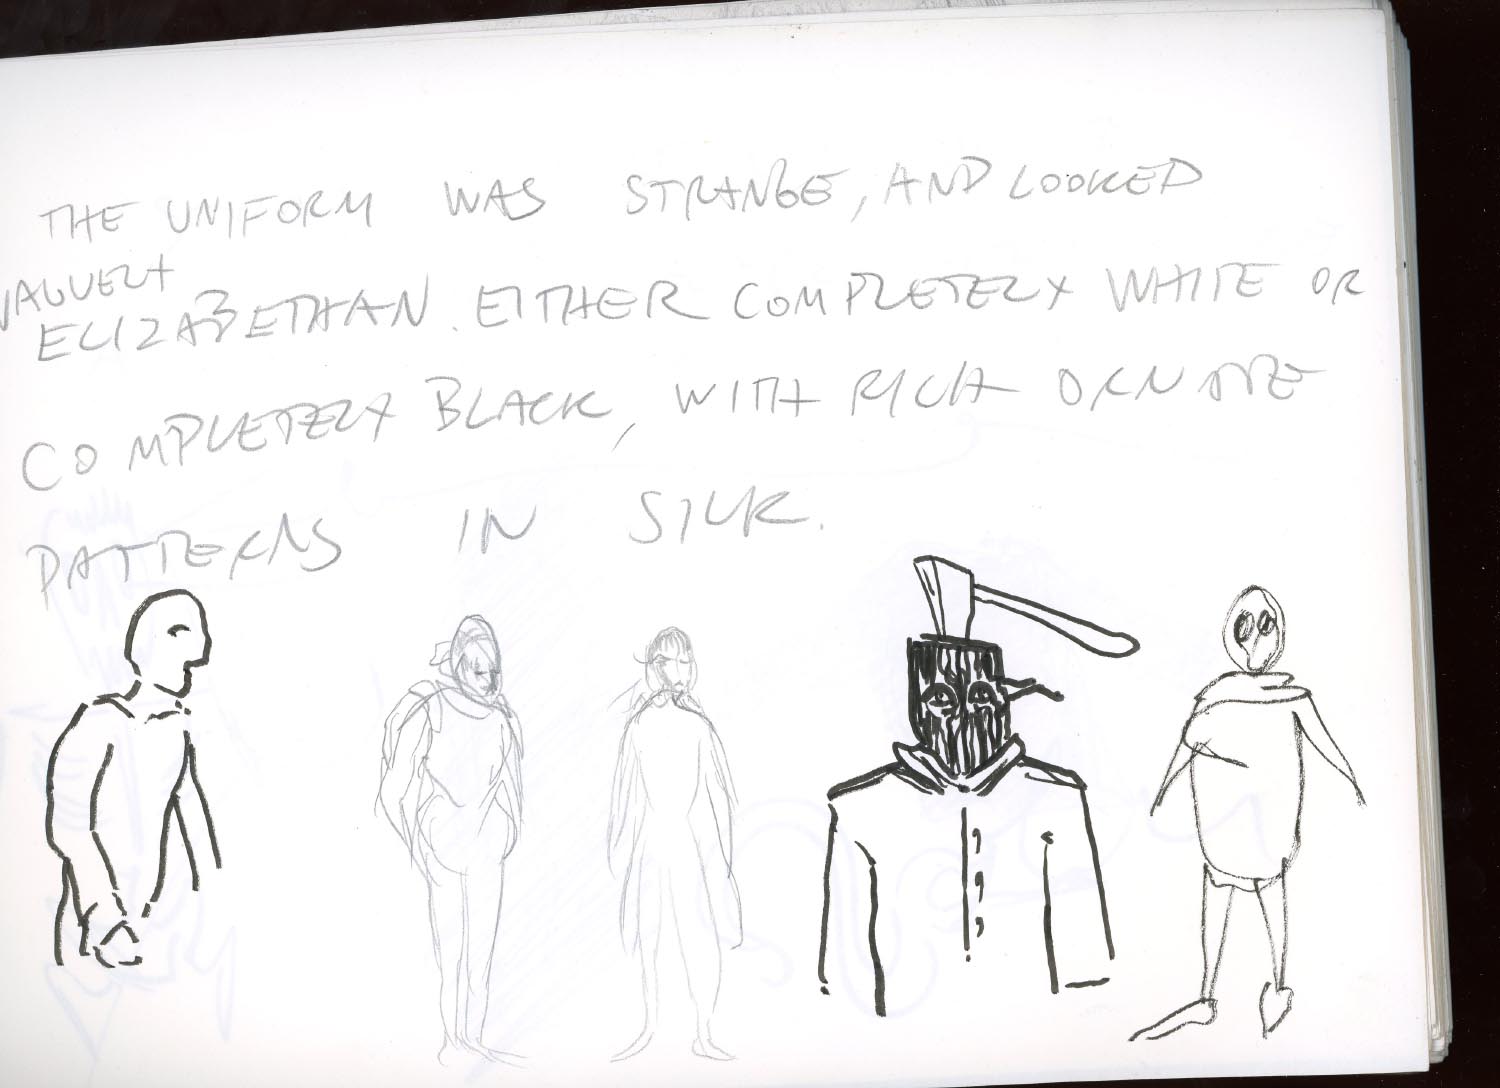 THE UNIFORM WAS STRANGE, AND LOOKED
VAGUELY
ELIZABETHAN. EITHER COMPLETELY WHITE OR
COMPLETELY BLACK, WITH RICH ORNATE
PATTERNS IN SILK.